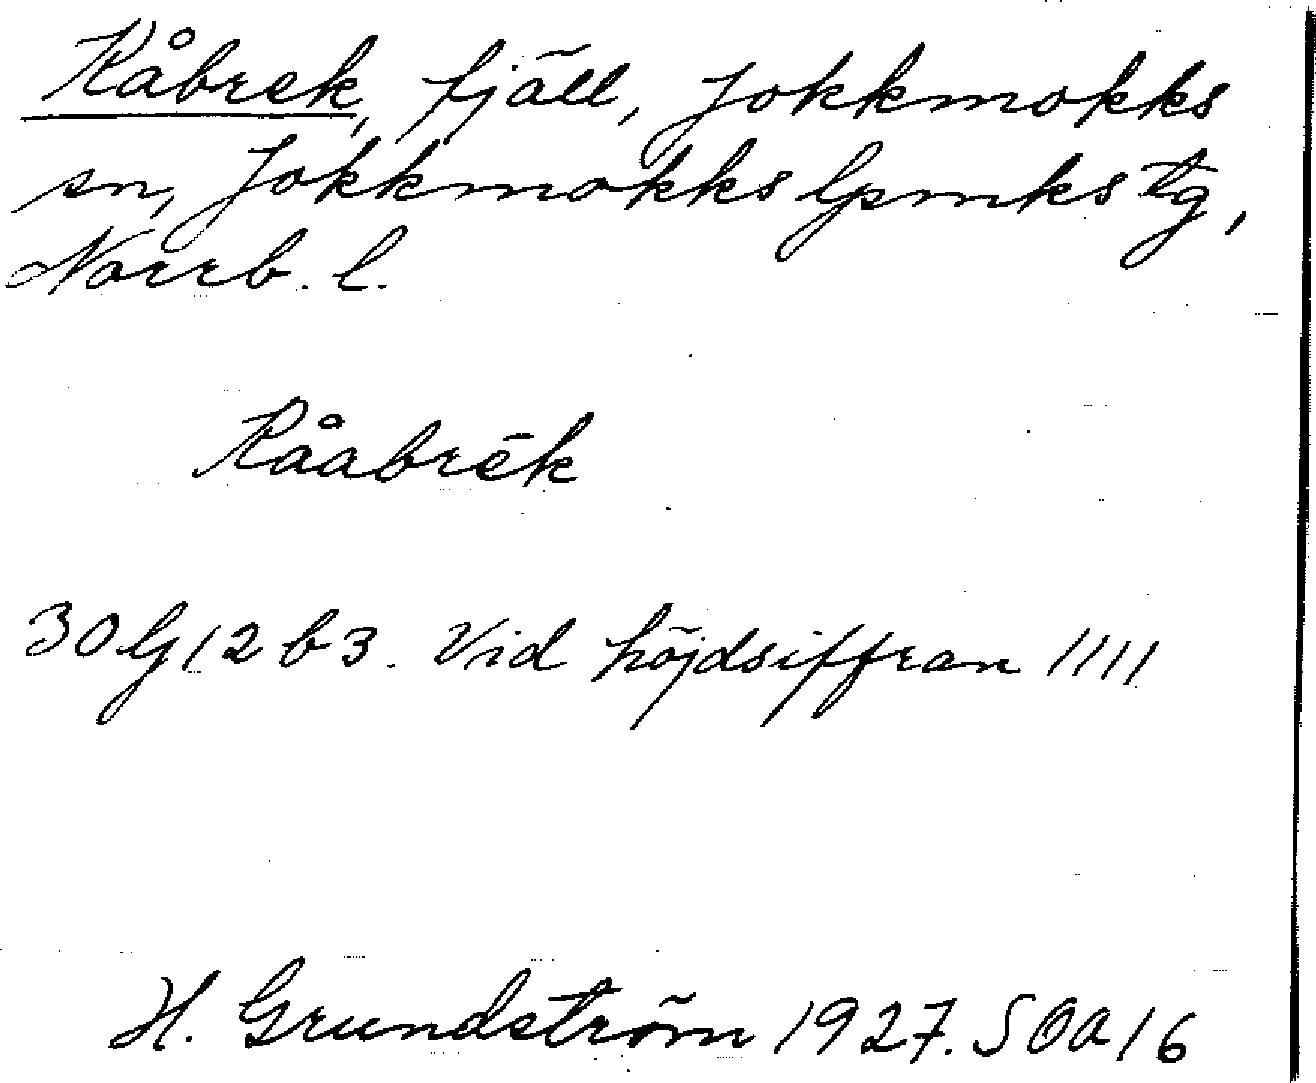 Råbrek, fjäll, Jokkmokks
sn, Jokkmokks lpmks tg,
Norrb. l.
Råabrēk
30G12b3. Vid höjdsiffran 1111
H. Grundström 1927. SOA16